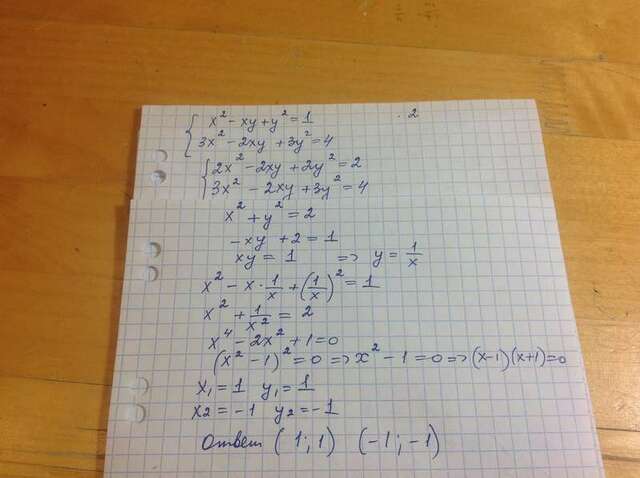 x² xy+y²=1 ·2
3x²-2xy+3y²=4
2x² 2xy+2y²=2
3x²-2xy+3y²=4
x²+y²=2
-xy+2=1
xy=1 => y=1/x
x²-x·1/x+(1/x)²=1
x²+1/x²=2
x⁴-2x²+1=0
(x²-1)²=0=>x²-1=0=>(x-1)(x+1)=0
x₁=1 y₁=1
x₂=-1 y₂=-1
Ответ (1;1) (-1;-1)